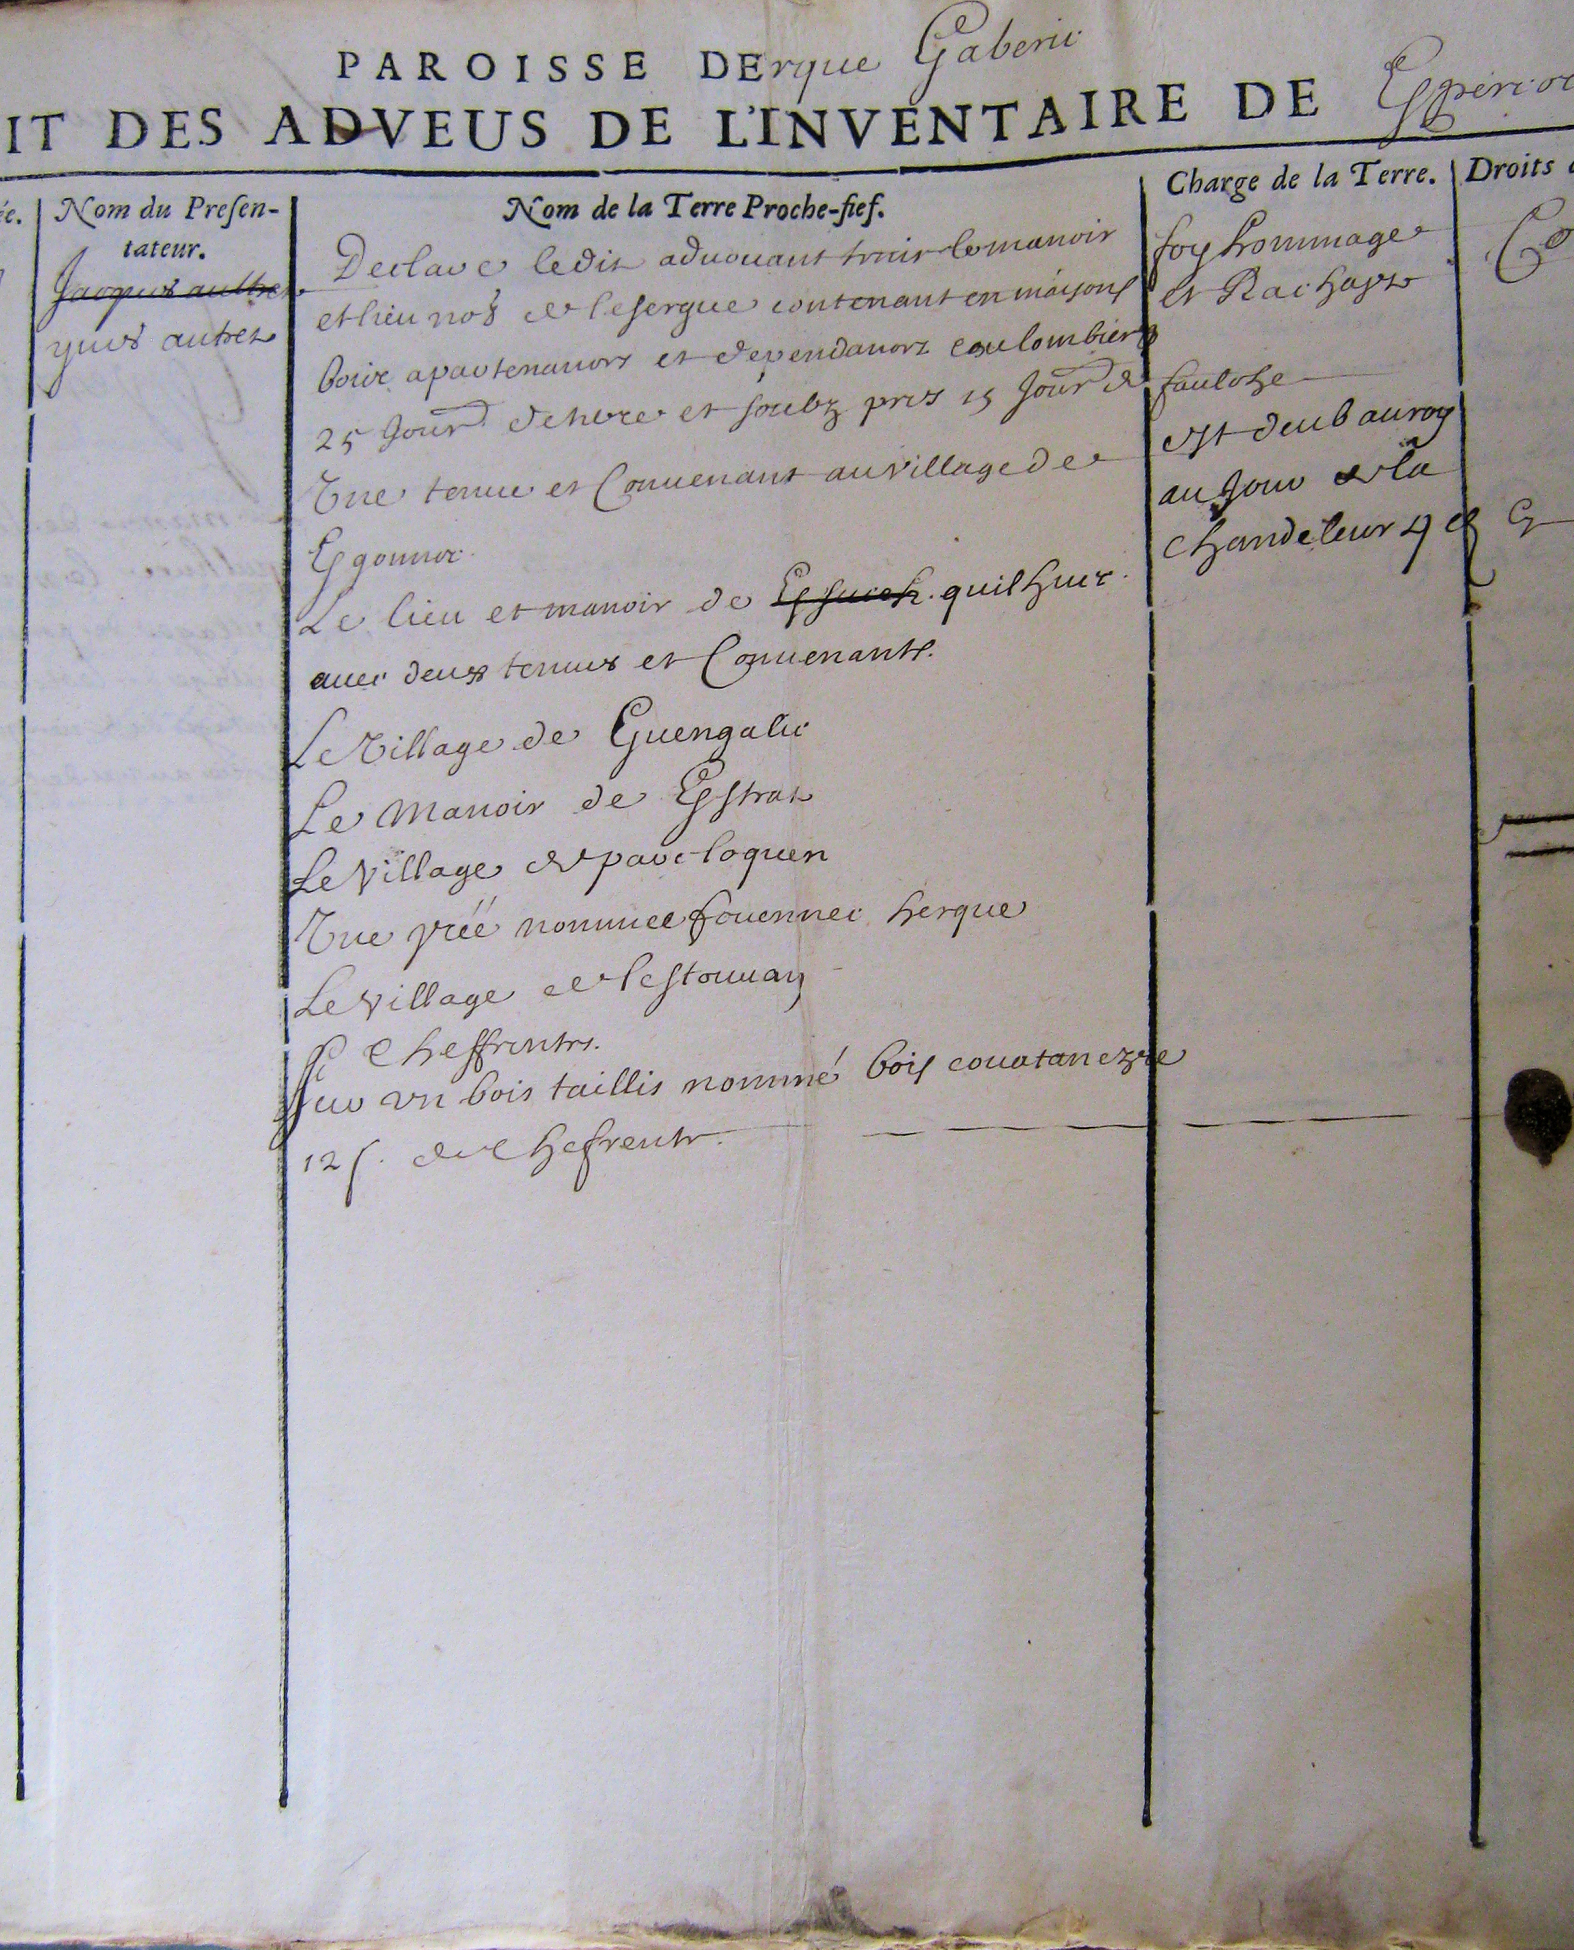 PAROISSE DErque Gaberic
IT DES ADVEUS DE L'INVENTAIRE DE
ée.
Nom du Presen-
tateur.
Jacques aultres
ques autres
Nom de la Terre Proche-fief.
Declare ledit advouant tenir le manoir
et lieu nob de lesergue contenant en maisons
bois apartenances et dependances coulombier
25 Jour de terre et soubz prez 15 Jour de faulohe
Une tenue et Convenant au village de
Kgonnoc.
Le lieu et manoir de quilhuec.
avec deux tenues et Convenants.
Le Village de Guengalic
Le Manoir de Kstrat
Le Village de parcloquen
Une préé nommee fouennec herque
Le village de lestouuan
Cheffrentes.
Sur vn bois taillis nommé bois couatanezre
12 s. de Chefrente.
Charge de la Terre.
foy hommage
et Rachapt
est deub au roy
au Jour de la
chandeleur 4
Droits